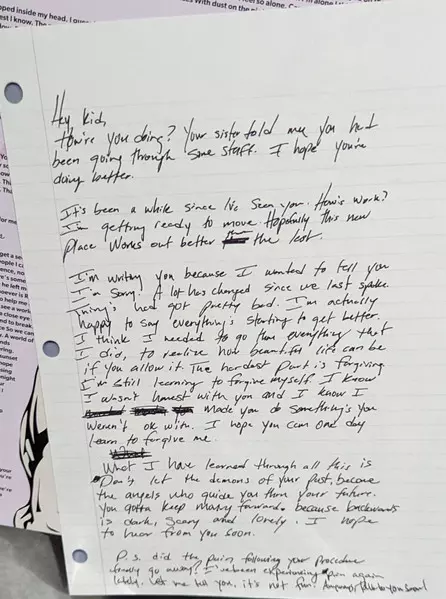 pped inside my head. I gues
est I know. The
With dust on the
eel so alone.
Hey kid,
How're you doing? Your sister told me you had
been going through some stuff. I hope you're
doing better.
It's been a while since I've seen you. How's work?
I'm getting ready to move. Hopefully this new
place works out better the last.
I'm writing you because I wanted to tell you
I'm sorry. A lot has changed since we last spoke.
Thing's had got pretty bad. I'm actually
happy to say everything's starting to get better.
I think I needed to go thru everything that
I did, to realize how beautiful life can be
if you allow it. The hardest part is forgiving
I'm still learning to forgive myself. I know
I wasn't honest with you and I know I
made you do something's you
weren't ok with. I hope you can one day
learn to forgive me.
What I have learned through all this is
Don't let the demons of your past, become
the angels who guide you thru your future.
You gotta keep moving forward. because backwards
is dark, scary and lonely. I hope
to hear from you soon.
P.S. did the pain following your procedure
finally go away? I've been experiencing pain again
lately. Let me tell you, it's not fun. Anyways, talk to you soon!